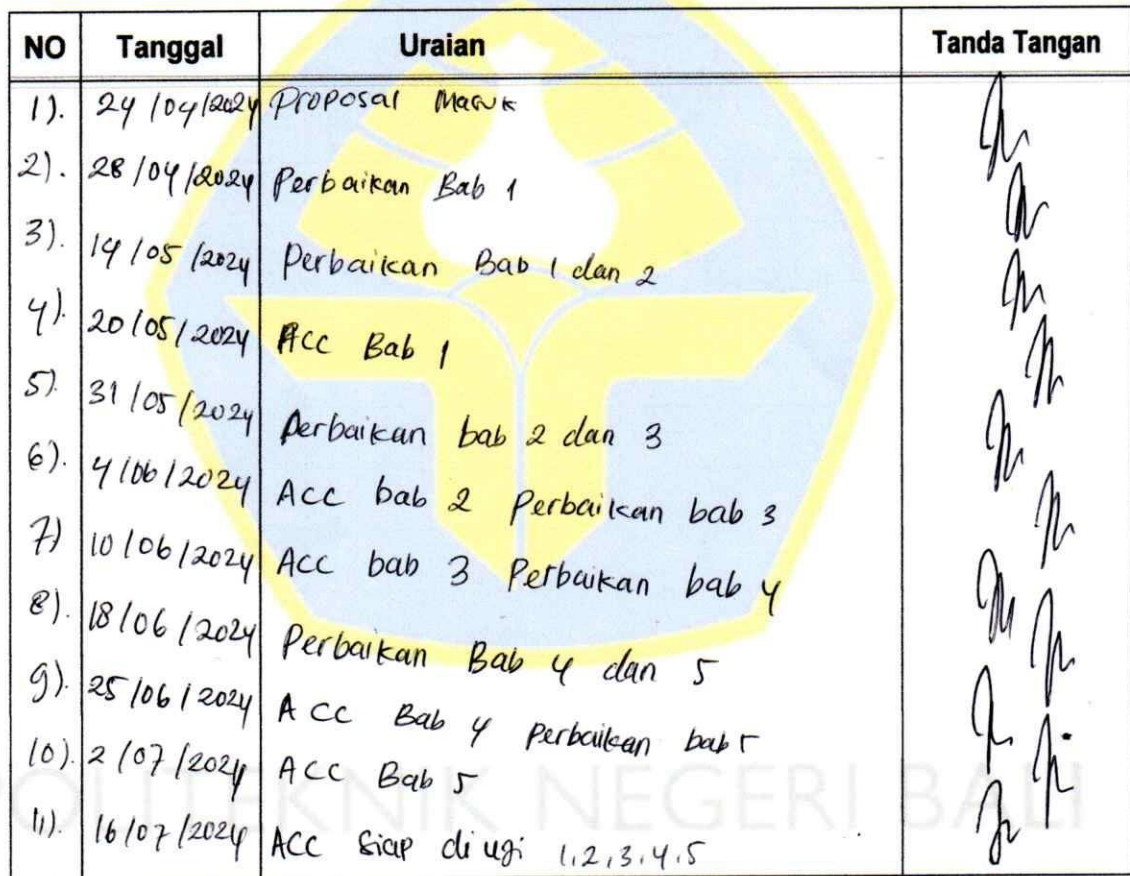 NO Tanggal Uraian Tanda Tangan
1). 24/04/2024 Proposal Masuk
2). 28/04/2024 Perbaikan Bab 1
3). 14/05/2024 Perbaikan Bab 1 dan 2
4). 20/05/2024 ACC Bab 1
5). 31/05/2024 Perbaikan bab 2 dan 3
6). 4/06/2024 ACC bab 2 Perbaikan bab 3
7) 10/06/2024 ACC bab 3 Perbaikan bab 4
8). 18/06/2024 Perbaikan Bab 4 dan 5
9). 25/06/2024 ACC Bab 4 perbaikan bab 5
10). 2/07/2024 ACC Bab 5
11). 16/07/2024 ACC Siap di uji 1,2,3,4,5
POLITEKNIK NEGERI BALI